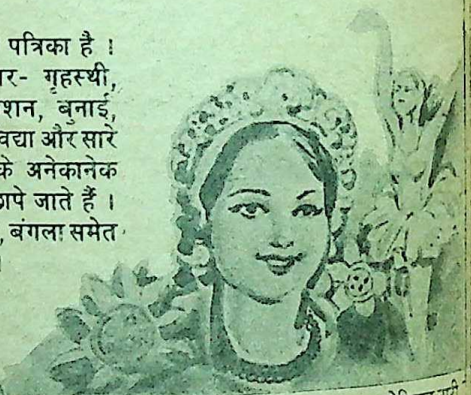 पत्रिका है ।
र- गृहस्थी,
शन, बुनाई,
वद्या और सारे
के अनेकानेक
ापे जाते हैं ।
, बंगला समेत